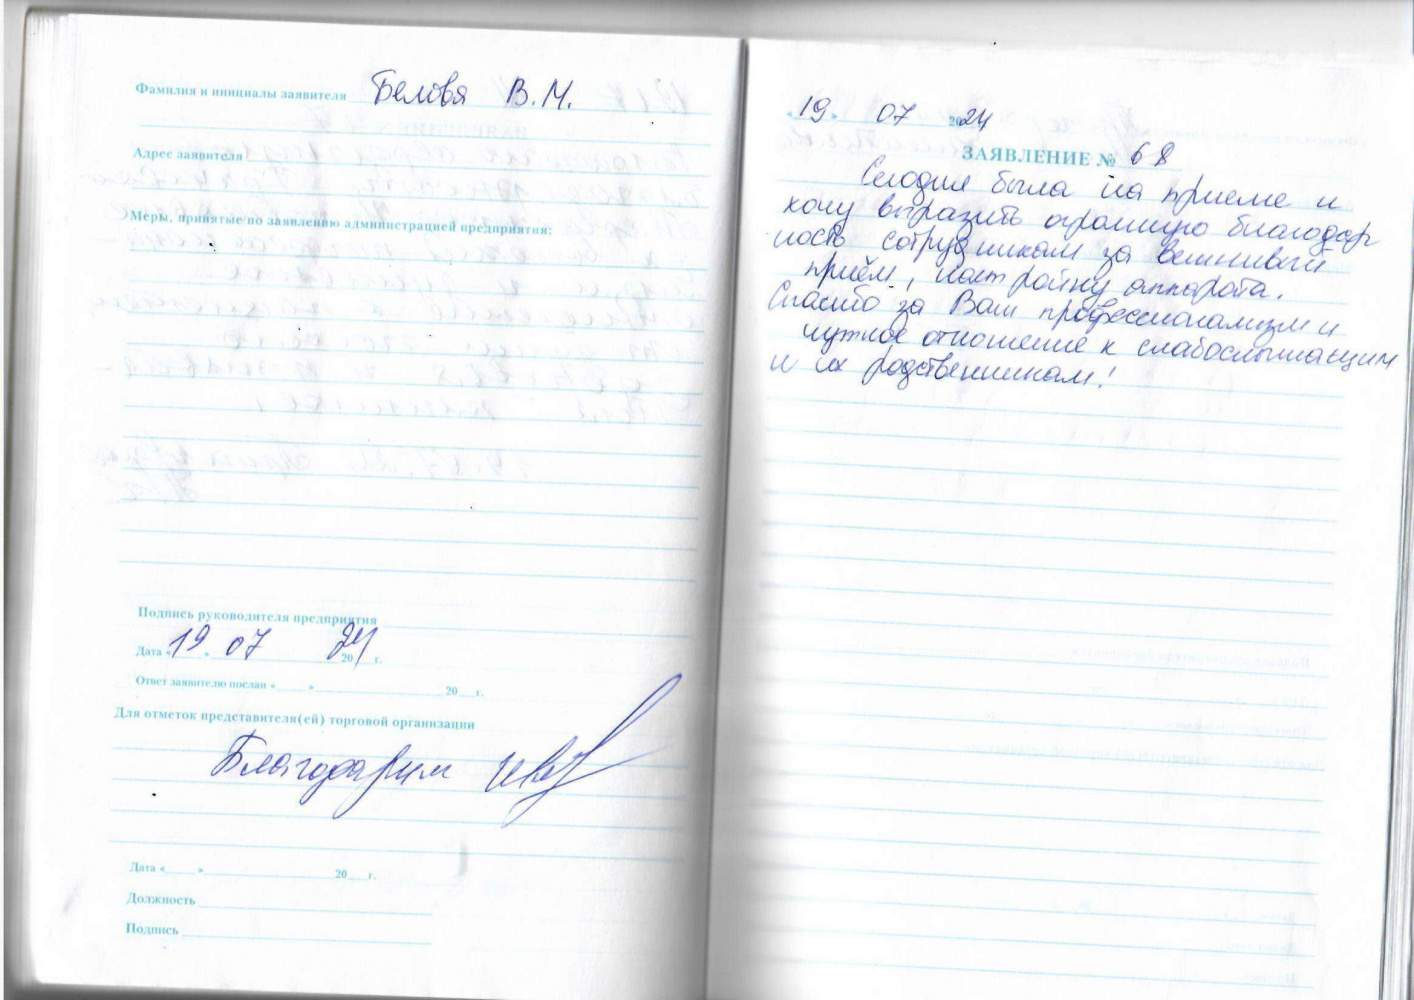 Фамилия и инициалы заявителя Белова В.М.
Адрес заявителя
Меры, принятые по заявлению администрацией предприятия:
Подпись руководителя предприятия
Дата «19» 07 2024 г.
Ответ заявителю послан «____» ____ 20__ г.
Для отметок представителя(ей) торговой организации
Благодарим
Дата «____» ____ 20__ г.
Должность
Подпись
«19» 07 2024
ЗАЯВЛЕНИЕ № 68
Сегодня была на приеме и
хочу выразить огромную благодар
ность сотрудникам за вежливый
приём, настройку аппарата.
Спасибо за Ваш профессионализм и
чуткое отношение к слабослышащим
и их родственникам!